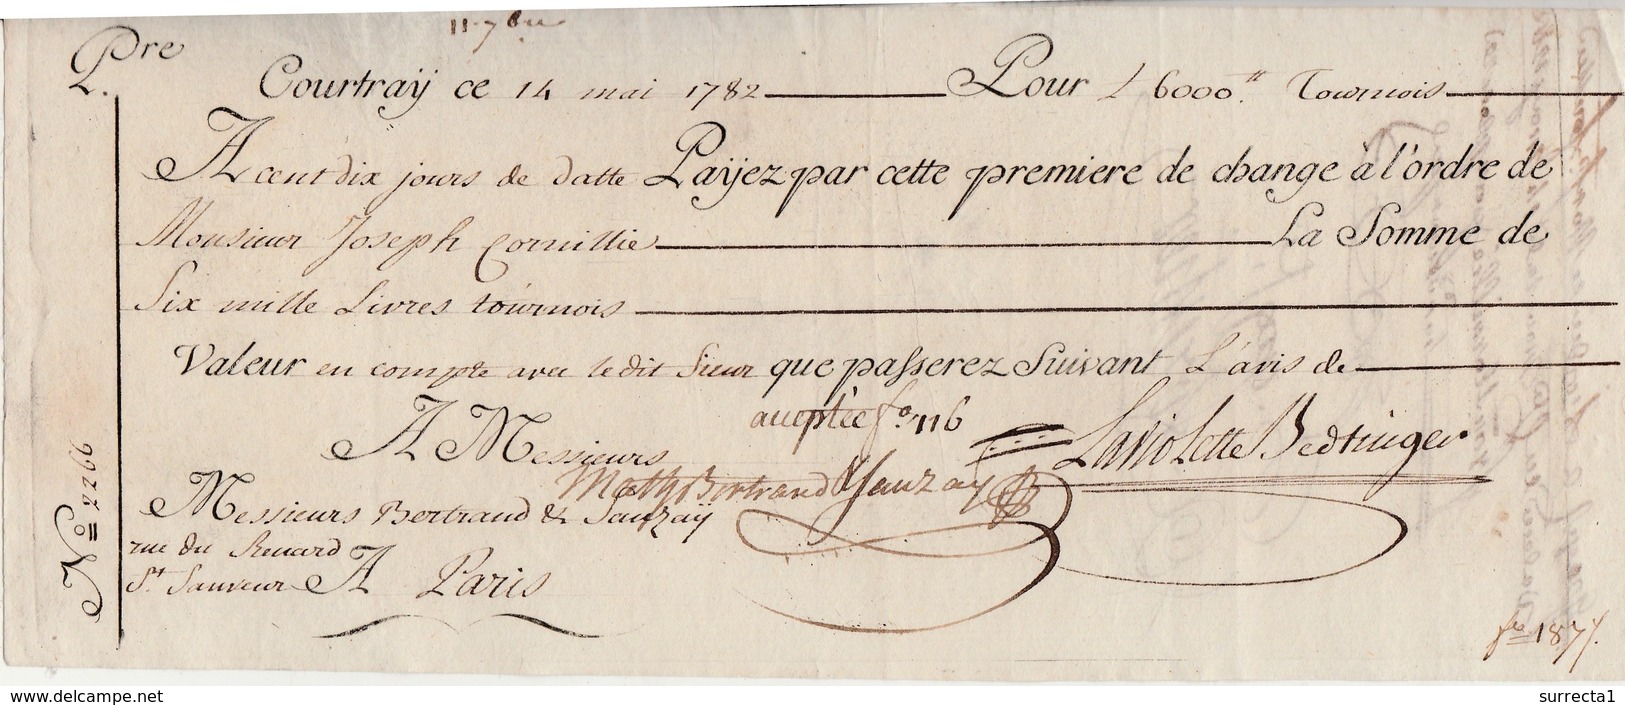 11. 7bre
Pre
Courtraÿ ce 14 mai 1782 Pour L 6000.tt Tournois
A cent dix jours de datte Païjez par cette premiere de change à l'ordre de
Monsieur Joseph Cornillie La Somme de
Six mille Livres tournois
Valeur en compte avec ledit Sieur que passerez Suivant L'avis de
acceptée fo. 116
A Messieurs
Laviolette Bedtinger
Math Bertrand & Sauzaÿ
Messieurs Bertrand & Sauzaÿ
rue du Renard
St. Sauveur A Paris
No= 
fo 187
www.delcampe.net
surrecta1